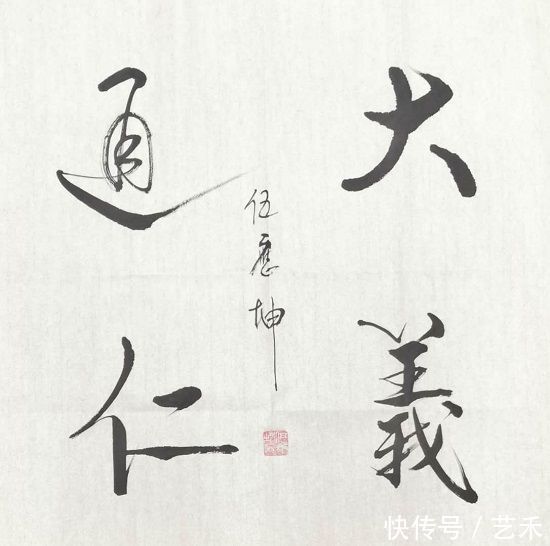 大義
通仁
伍應坤
快传号/艺禾